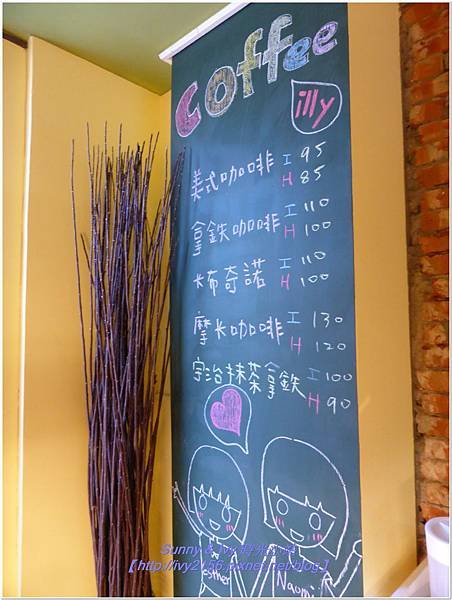 Coffee
illy
美式咖啡 I 95
H 85
拿鉄咖啡 I 110
H 100
卡布奇諾 I 110
H 100
摩卡咖啡 I 130
H 120
宇治抹茶拿鉄 I 100
H 90
Esther
Naomi
Sunny & Ivy